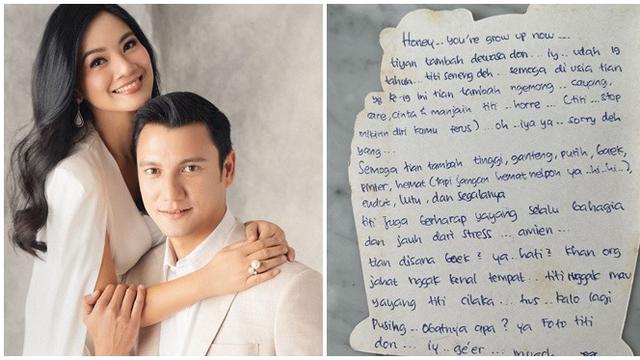 Honey... you're grow up now ....
tiyan tambah dewasa don... iy.. udah 19
tahun... titi seneng deh.. semoga di usia tian
yg ke-19 ini tian tambah ngemong.. sayang,
care, cinta & manjain titi.. horre... (titi.. stop
mikirin diri kamu terus).. oh.. iya ya.. sorry deh
bang...
Semoga tian tambah tinggi, ganteng, putih, baek,
pinter, hemat (tapi jangan hemat nelpon ya..hi..hi..),
endut, lutu, dan segalanya
titi juga berharap yayang selalu bahagia
dan jauh dari stress... amien...
tian disana baek? ya.. hati? khan org
jahat nggak kenal tempat... titi nggak mau
yayang titi cilaka... hus.. kalo lagi
pusing.. obatnya apa? ya Foto titi
don... iy.. ge'er...